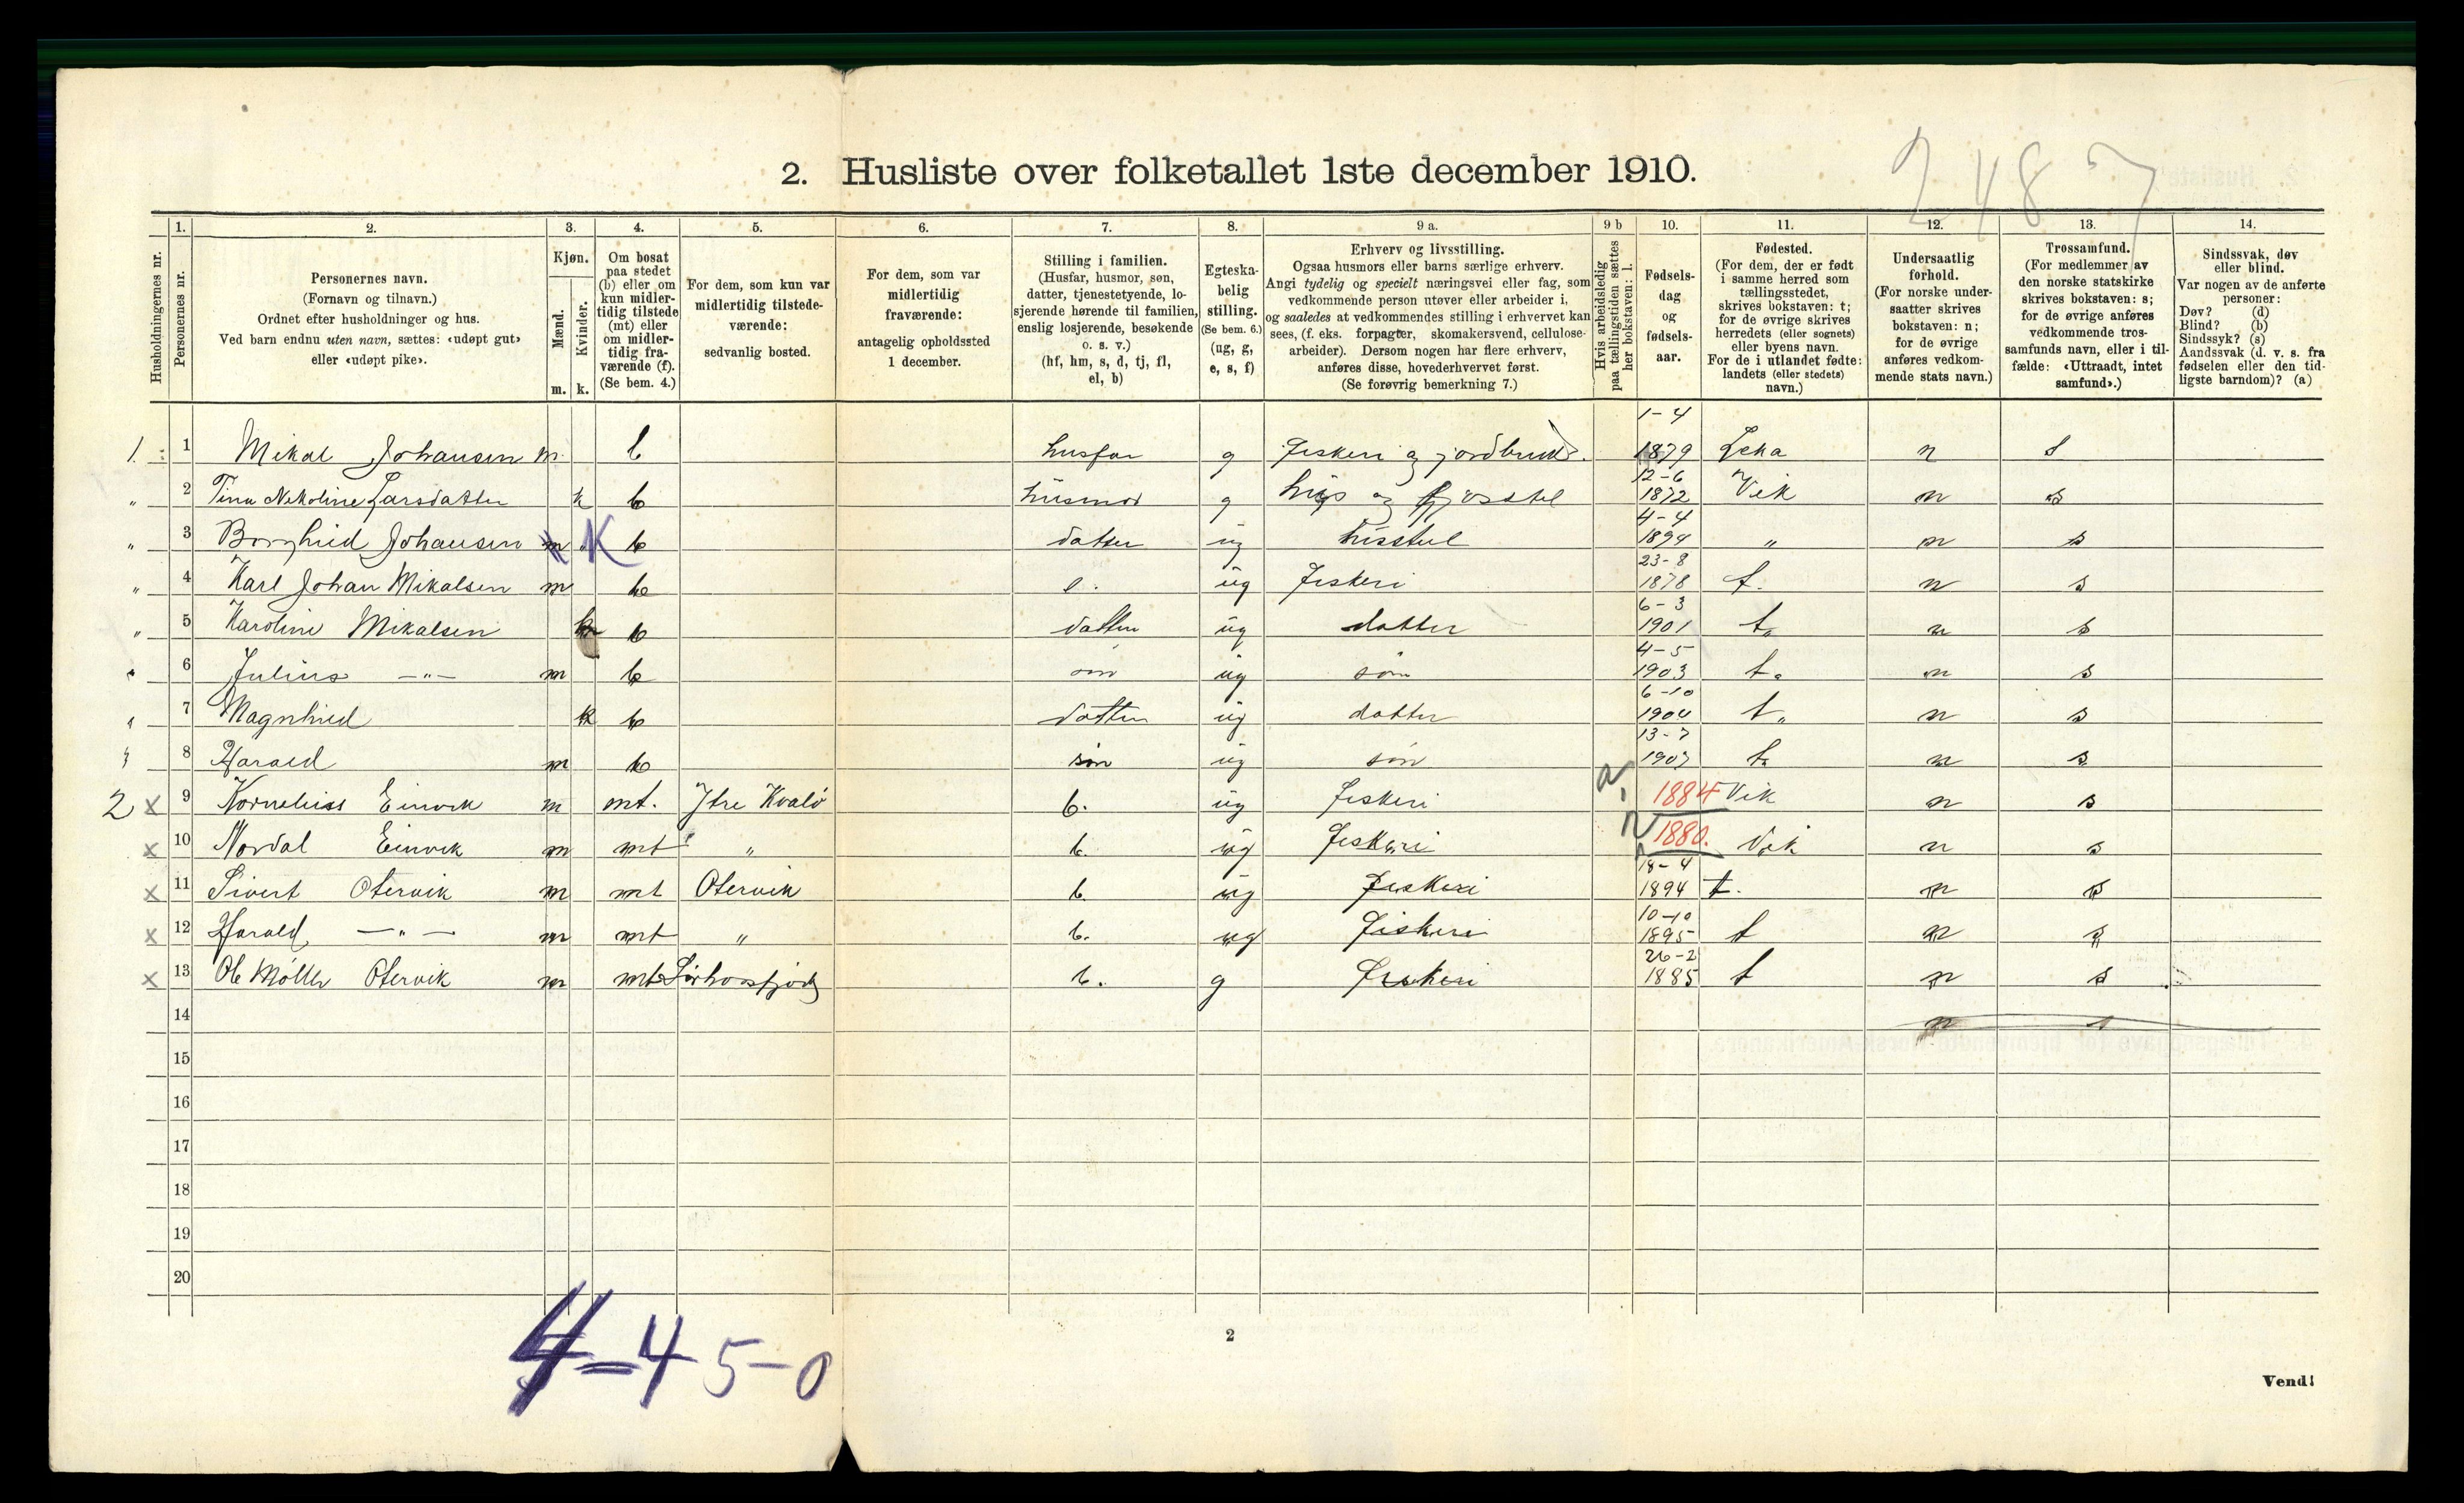 2487
2. Husliste over folketallet 1ste december 1910.
Husholdningernes nr.
1. Personernes nr.
2. Personernes navn.
(Fornavn og tilnavn.)
Ordnet efter husholdninger og hus.
Ved barn endnu uten navn, sættes: «udøpt gut»
eller «udøpt pike».
3. Kjøn.
Mænd. m.
Kvinder. k.
4. Om bosat
paa stedet
(b) eller om
kun midler-
tidig tilstede
(mt) eller
om midler-
tidig fra-
værende (f).
(Se bem. 4.)
5. For dem, som kun var
midlertidig tilstede-
værende:
sedvanlig bosted.
6. For dem, som var
midlertidig
fraværende:
antagelig opholdssted
1 december.
7. Stilling i familien.
(Husfar, husmor, søn,
datter, tjenestetyende, lo-
sjerende hørende til familien,
enslig losjerende, besøkende
o. s. v.)
(hf, hm, s, d, tj, fl,
el, b)
8. Egteska-
belig
stilling.
(Se bem. 6.)
(ug, g,
e, s, f)
9 a. Erhverv og livsstilling.
Ogsaa husmors eller barns særlige erhverv.
Angi tydelig og specielt næringsvei eller fag, som
vedkommende person utøver eller arbeider i,
og saaledes at vedkommendes stilling i erhvervet kan
sees, (f. eks. forpagter, skomakersvend, cellulose-
arbeider). Dersom nogen har flere erhverv,
anføres disse, hovederhvervet først.
(Se forøvrig bemerkning 7.)
9 b Hvis arbeidsledig
paa tællingstiden sættes
her bokstaven: l.
10. Fødsels-
dag
og
fødsels-
aar.
11. Fødested.
(For dem, der er født
i samme herred som
tællingsstedet,
skrives bokstaven: t;
for de øvrige skrives
herredets (eller sognets)
eller byens navn.
For de i utlandet fødte:
landets (eller stedets)
navn.)
12. Undersaatlig
forhold.
(For norske under-
saatter skrives
bokstaven: n;
for de øvrige
anføres vedkom-
mende stats navn.)
13. Trossamfund.
(For medlemmer av
den norske statskirke
skrives bokstaven: s;
for de øvrige anføres
vedkommende tros-
samfunds navn, eller i til-
fælde: «Uttraadt, intet
samfund».)
14. Sindssvak, døv
eller blind.
Var nogen av de anførte
personer:
Døv? (d)
Blind? (b)
Sindssyk? (s)
Aandssvak (d. v. s. fra
fødselen eller den tid-
ligste barndom)? (a)
1. 1 Mikal Johansen m. b husfar g Fiskeri og jordbruk. 1-4 1879 Leka n s
" 2 Tina Nikoline Larsdatter k b husmor g hus og fjosstel 12-6 1872 Vik n s
" 3 Borghild Johansen K b datter ug husstel 4-4 1894 " n s
" 4 Karl Johan Mikalsen m b ug Fiskeri 23-8 1878 t. n s
" 5 Karoline Mikalsen k b datter ug datter 6-3 1901 t. n s
" 6 Julius —"— m b søn ug søn 4-5 1903 t. n s
" 7 Magnhild k b datter ug datter 6-10 1904 t. n s
" 8 Harald m b søn ug søn 13-7 1907 t. n s
2 x 9 Kornelius Einvik m mt. Ytre Kvalö b. ug fiskeri 1884 Vik n s
x 10 Nordal Einvik m mt " b. ug fiskeri 1880. Vik n s
x 11 Sivert Otervik m mt Otervik b. ug Fiskeri 18-4 1894 t. n s
x 12 Harald —"— m mt " b. ug Fiskeri 10-10 1895 t n s
x 13 Ole Möller Otervik m mt b. g Fiskeri 26-2 1885 t n s
14 n s
15
16
17
18
19
20
4-4 5-0
2
Vend!